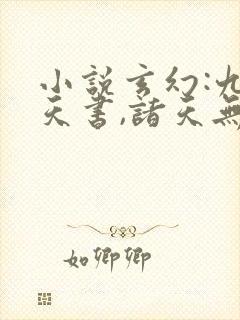 小說玄幻:九
天書,諸天無
如卿卿